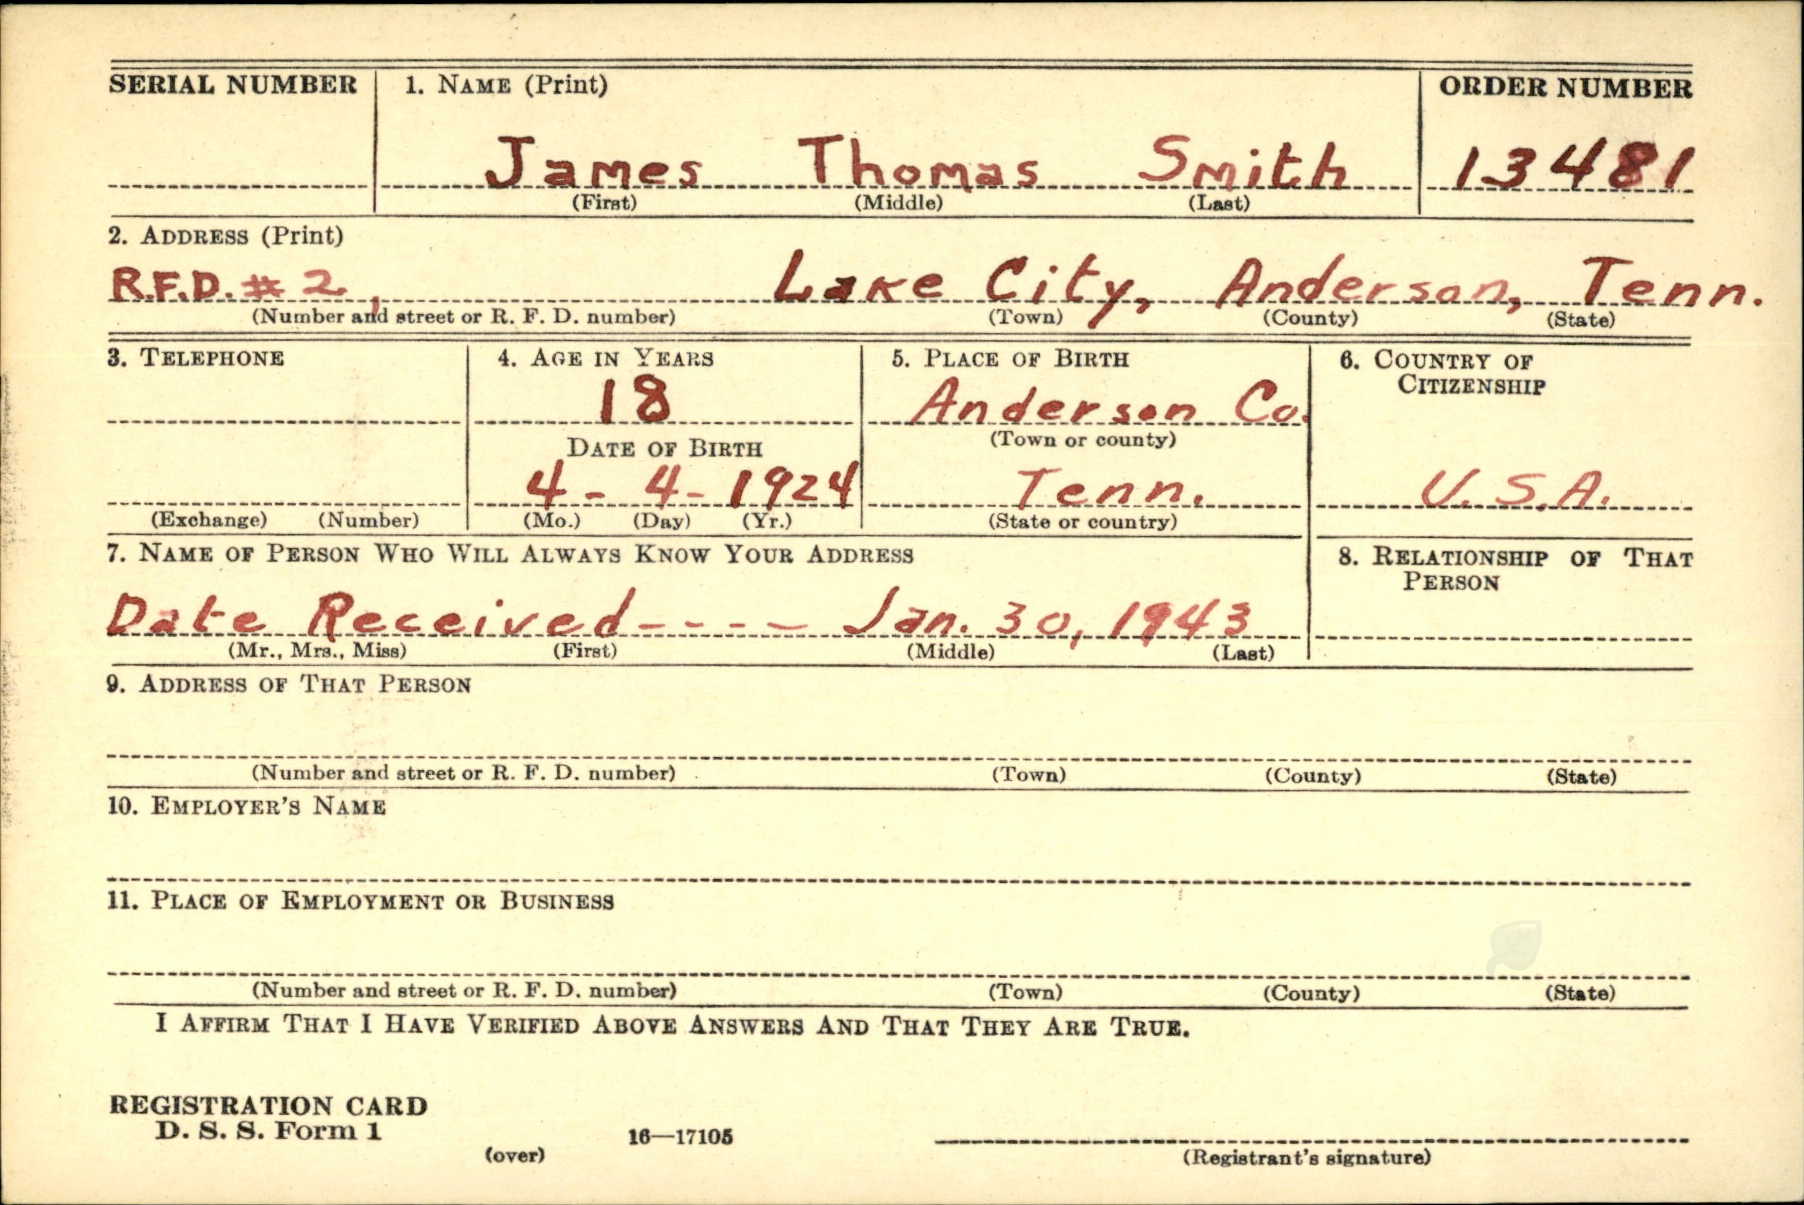 SERIAL NUMBER 1. NAME (Print) ORDER NUMBER
James Thomas Smith 13481
(First) (Middle) (Last)
2. ADDRESS (Print)
R.F.D. # 2, Lake City, Anderson, Tenn.
(Number and street or R. F. D. number) (Town) (County) (State)
3. TELEPHONE 4. AGE IN YEARS 5. PLACE OF BIRTH 6. COUNTRY OF
CITIZENSHIP
18 Anderson Co.
DATE OF BIRTH (Town or county)
4 - 4 - 1924 Tenn. U. S. A.
(Exchange) (Number) (Mo.) (Day) (Yr.) (State or country)
7. NAME OF PERSON WHO WILL ALWAYS KNOW YOUR ADDRESS 8. RELATIONSHIP OF THAT
PERSON
Date Received - - - - Jan. 30, 1943
(Mr., Mrs., Miss) (First) (Middle) (Last)
9. ADDRESS OF THAT PERSON
(Number and street or R. F. D. number) (Town) (County) (State)
10. EMPLOYER'S NAME
11. PLACE OF EMPLOYMENT OR BUSINESS
(Number and street or R. F. D. number) (Town) (County) (State)
I AFFIRM THAT I HAVE VERIFIED ABOVE ANSWERS AND THAT THEY ARE TRUE.
REGISTRATION CARD
D. S. S. Form 1 16—17105
(over) (Registrant's signature)